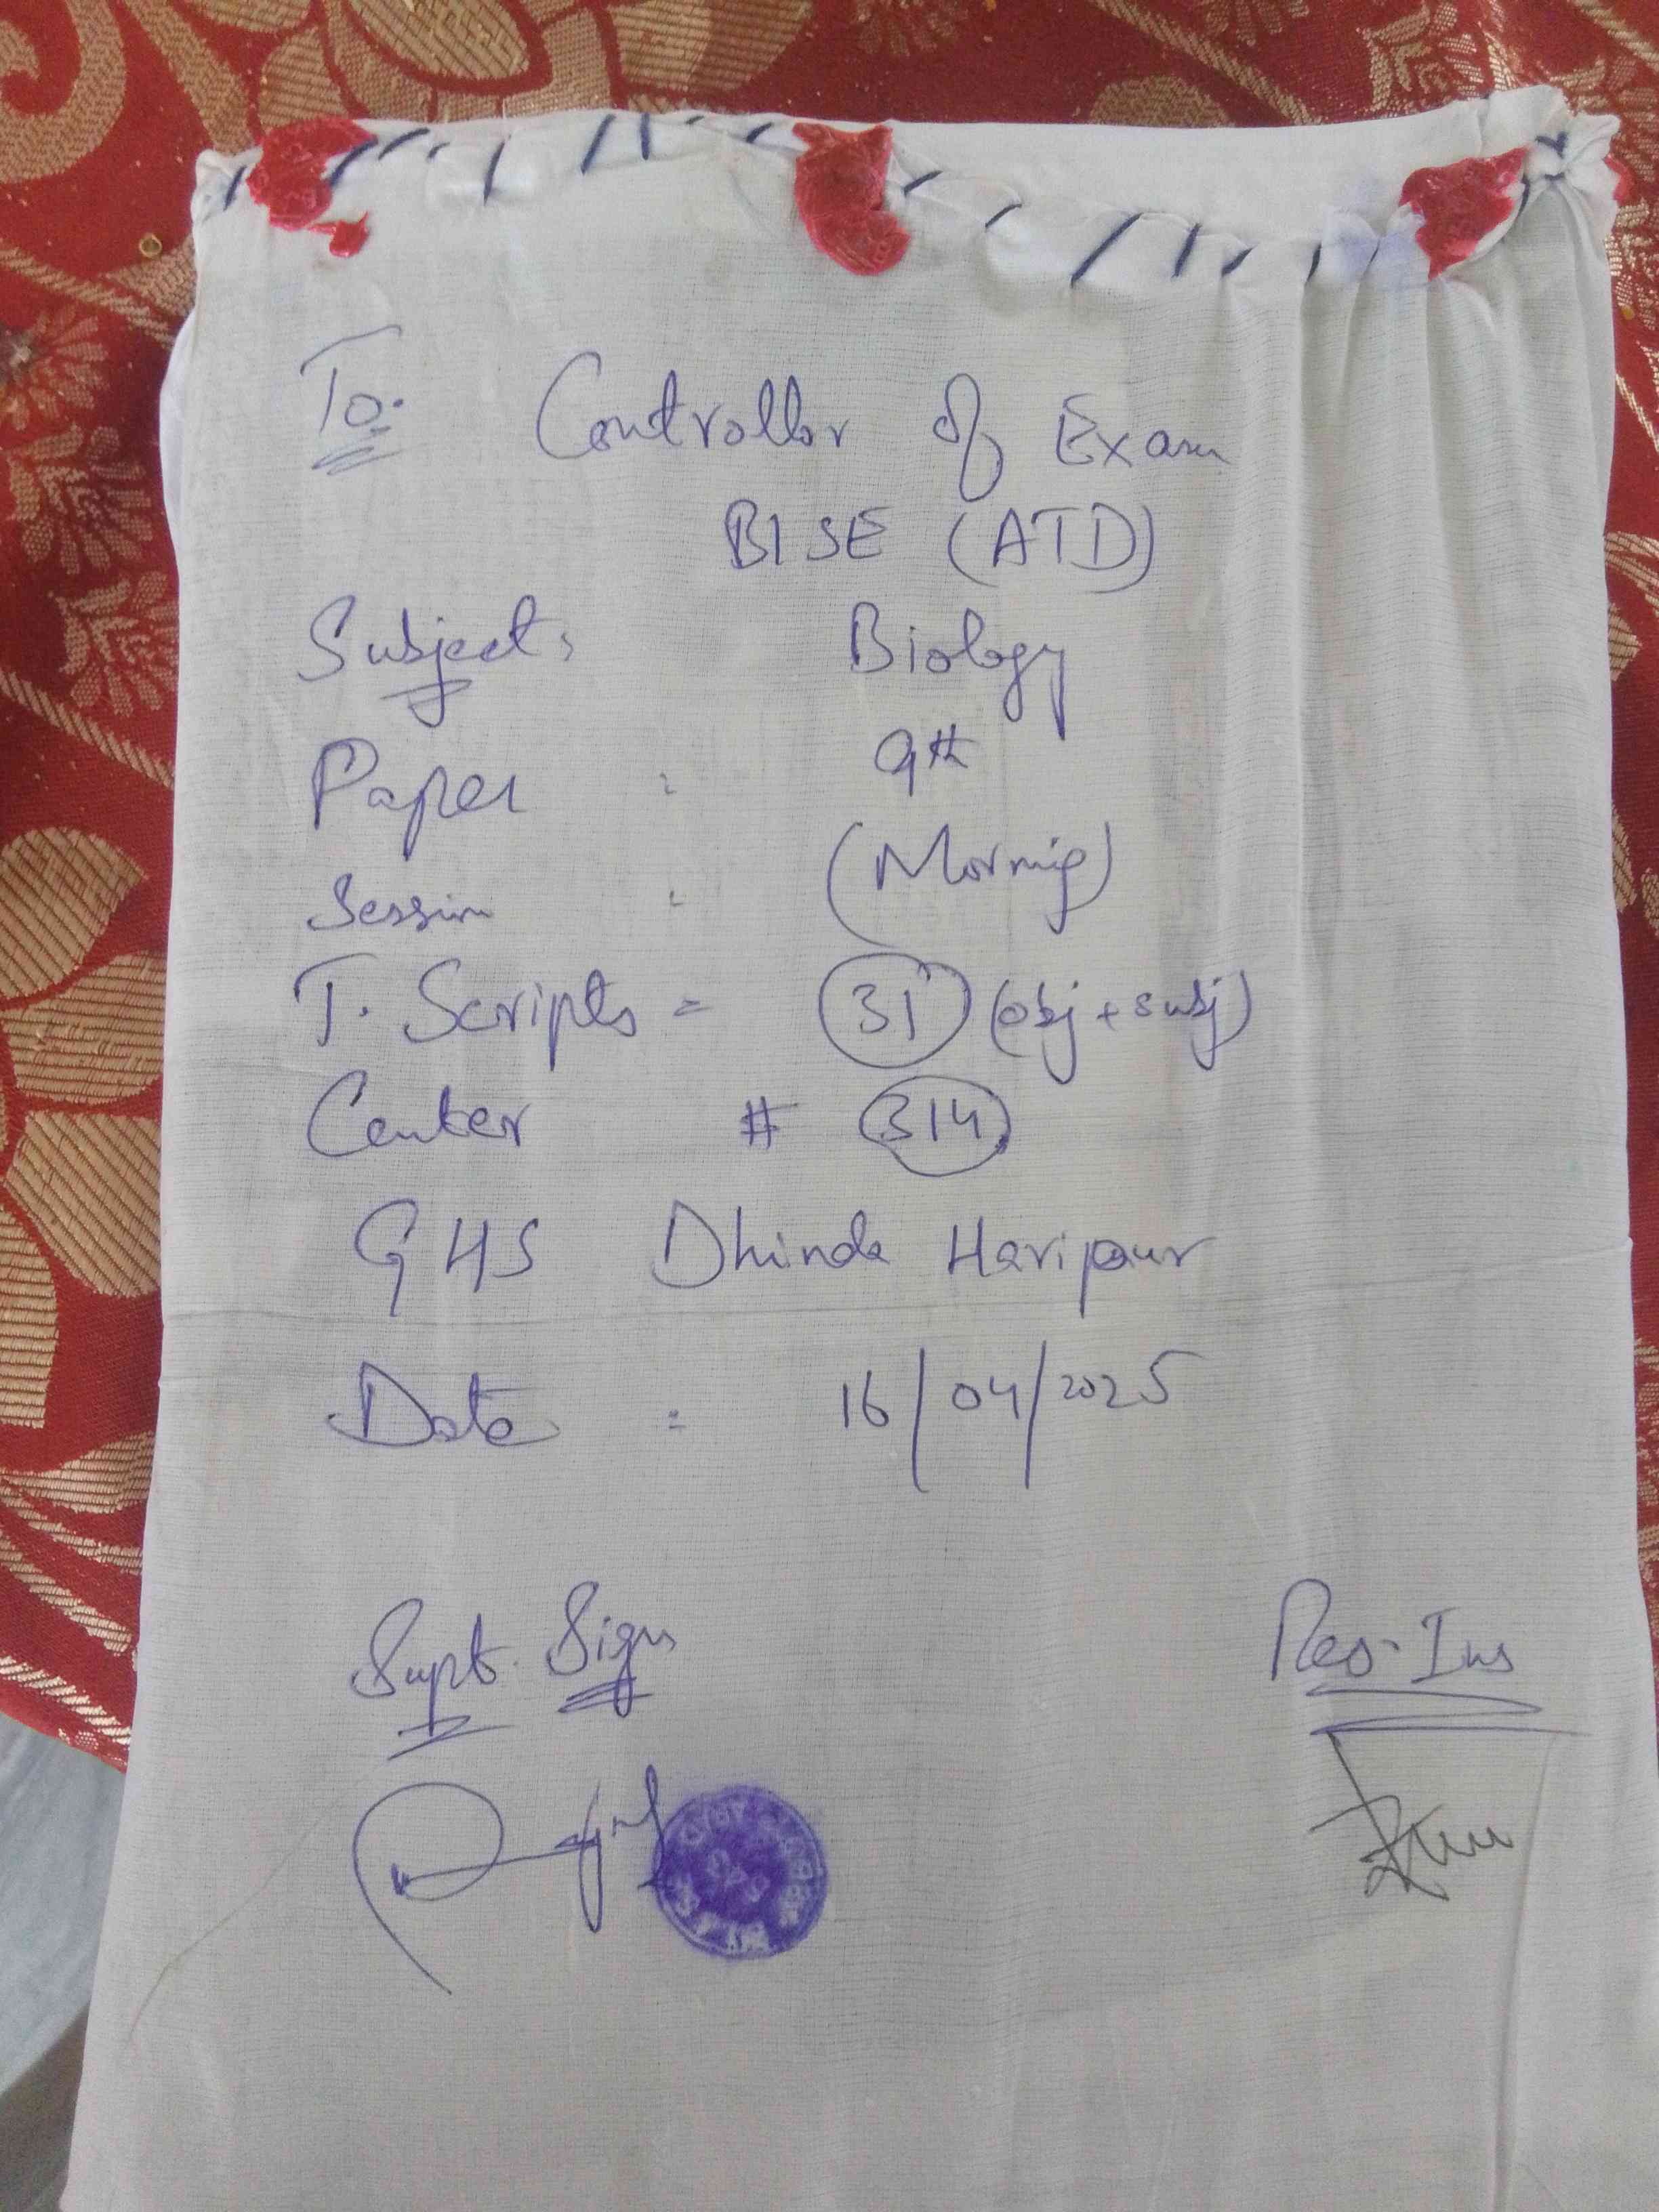 To: Controller of Exam
BISE (ATD)
Subject: Biology
Paper : 9th
Session : (Morning)
T. Scripts = 31 (obj + subj)
Center # 314
GHS Dhinda Haripur
Date = 16/04/2025
Supt. Sign Res. Ins